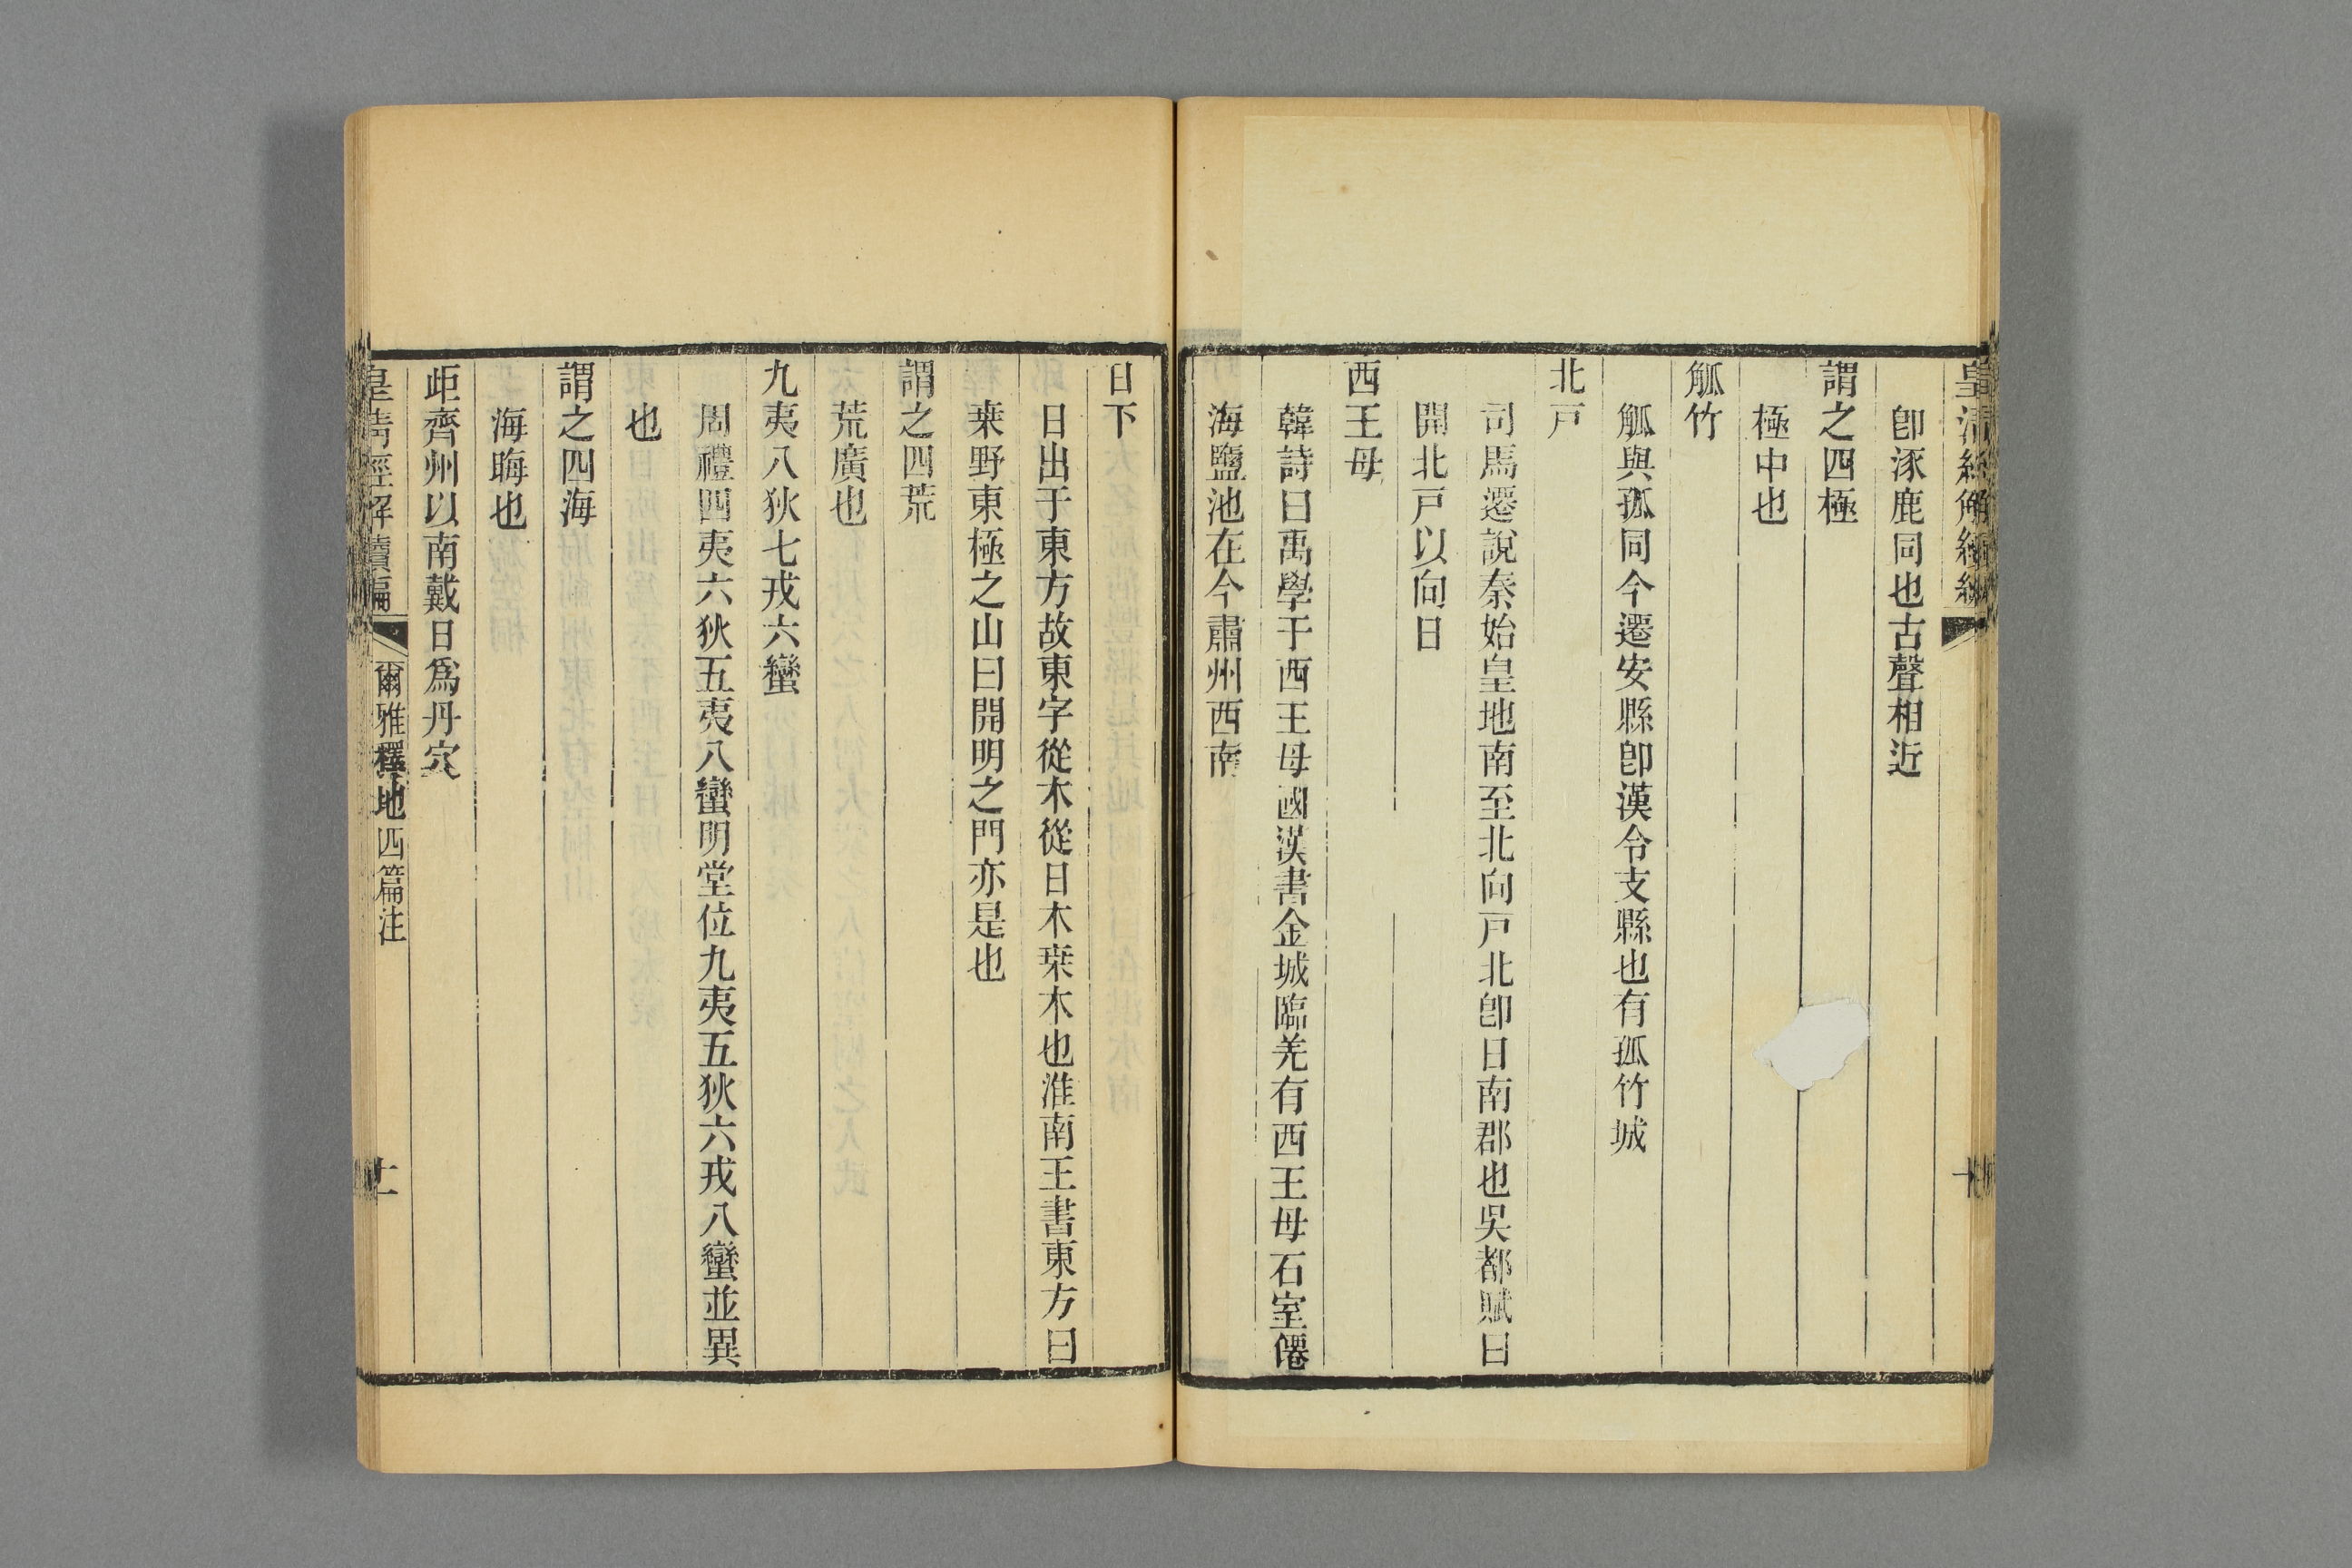 卽涿鹿同也古聲相近
謂之四極
極中也
觚竹
觚與孤同今遷安縣卽漢令支縣也有孤竹城
北戸
司馬遷說秦始皇地南至北向戸北卽日南郡也吳都賦曰
開北戸以向日
西王母
韓詩曰禹學于西王母國漢書金城臨羌有西王母石室僊
海鹽池在今肅州西南
日下
日出于東方故東字從木從日木桒木也淮南王書東方曰
桒野東極之山曰開明之門亦是也
謂之四荒
荒廣也
九夷八狄七戎六蠻
周禮四夷六狄五夷八蠻明堂位九夷五狄六戎八蠻並異
也
謂之四海
海晦也
岠齊州以南戴日爲丹穴
皇清經解續編
爾雅釋地四篇注
十一